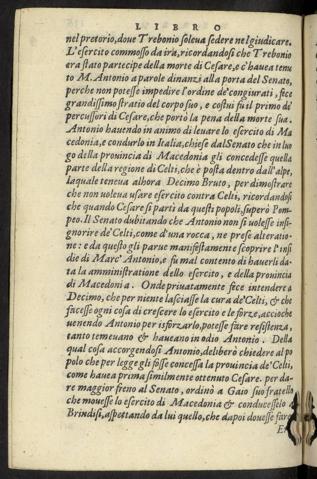 LIBRO
nel pretorio, doue Trebonio soleua sedere nel giudicare.
L'esercito commosso da ira, ricordandosi che Trebonio
era stato partecipe della morte di Cesare, e c'hauea tenu
to M. Antonio a parole dinanzi alla porta del Senato,
perche non potesse impedire l'ordine de' congiurati, fece
grandissimo stratio del corpo suo, e costui fu il primo de'
percussori di Cesare, che portò la pena della morte sua.
Antonio hauendo in animo di leuare lo esercito di Ma
cedonia, e condurlo in Italia, chiese dal Senato che in luo
go della prouincia di Macedonia gli concedesse quella
parte della regione di Celti, che è posta dentro dall'alpe,
laquale teneua alhora Decimo Bruto, per dimostrare
che non uoleua usare esercito contra Celti, ricordandosi
che quando Cesare si partì da questi popoli, superò Pom-
peo. Il Senato dubitando che Antonio non si uolesse insi-
gnorire de' Celti, come d'una rocca, ne prese alteratio-
ne: e da questo gli parue manifestamente scoprire l'insi
die di Marc' Antonio, e fu mal contento di hauerli da-
ta la amministratione dello esercito, e della prouincia
di Macedonia. Onde priuatamente fece intendere a
Decimo, che per niente lasciasse la cura de' Celti, & che
facesse ogni cosa di crescere lo esercito e le forze, accioche
uenendo Antonio per isforzarlo, potesse fare resistenza,
tanto temeuano & haueano in odio Antonio. Della
qual cosa accorgendosi Antonio, deliberò chiedere al po
polo che per legge gli fosse concessa la prouincia de' Celti,
come hauea prima similmente ottenuto Cesare. per da-
re maggior freno al Senato, ordinò a Gaio suo fratello
che mouesse lo esercito di Macedonia & conducesselo a
Brindisi, aspettando da lui quello, che dapoi douesse fare